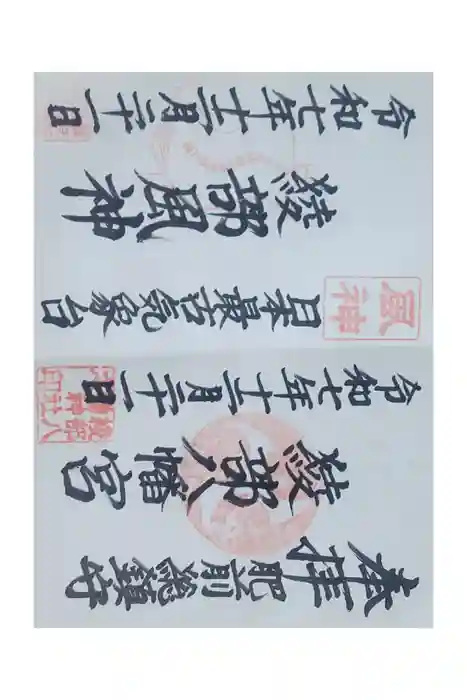 奉拝
肥前総鎮守
綾部八幡宮
令和七年十二月二十一日
風神
日本最古気象台
綾部風神
令和七年十二月二十一日